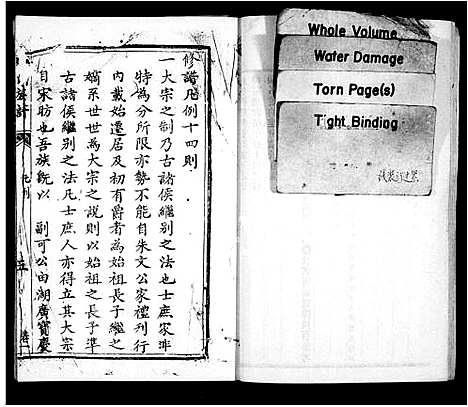 修譜凡例十四則
一大宗之制乃古諸侯繼别之法也士庶家非
特為分所限亦勢不能自朱文公家禮刋行
内載始遷居及初有爵者為始祖長子繼之
嫡系世世為大宗之説則以始祖之長子準
古諸侯繼别之法凡士庶人亦得立其大宗
自宋昉也吾族既以 副可公由湖廣寶慶
凡例
五
卷一
Whole Volume
Water Damage
Torn Page(s)
Tight Binding